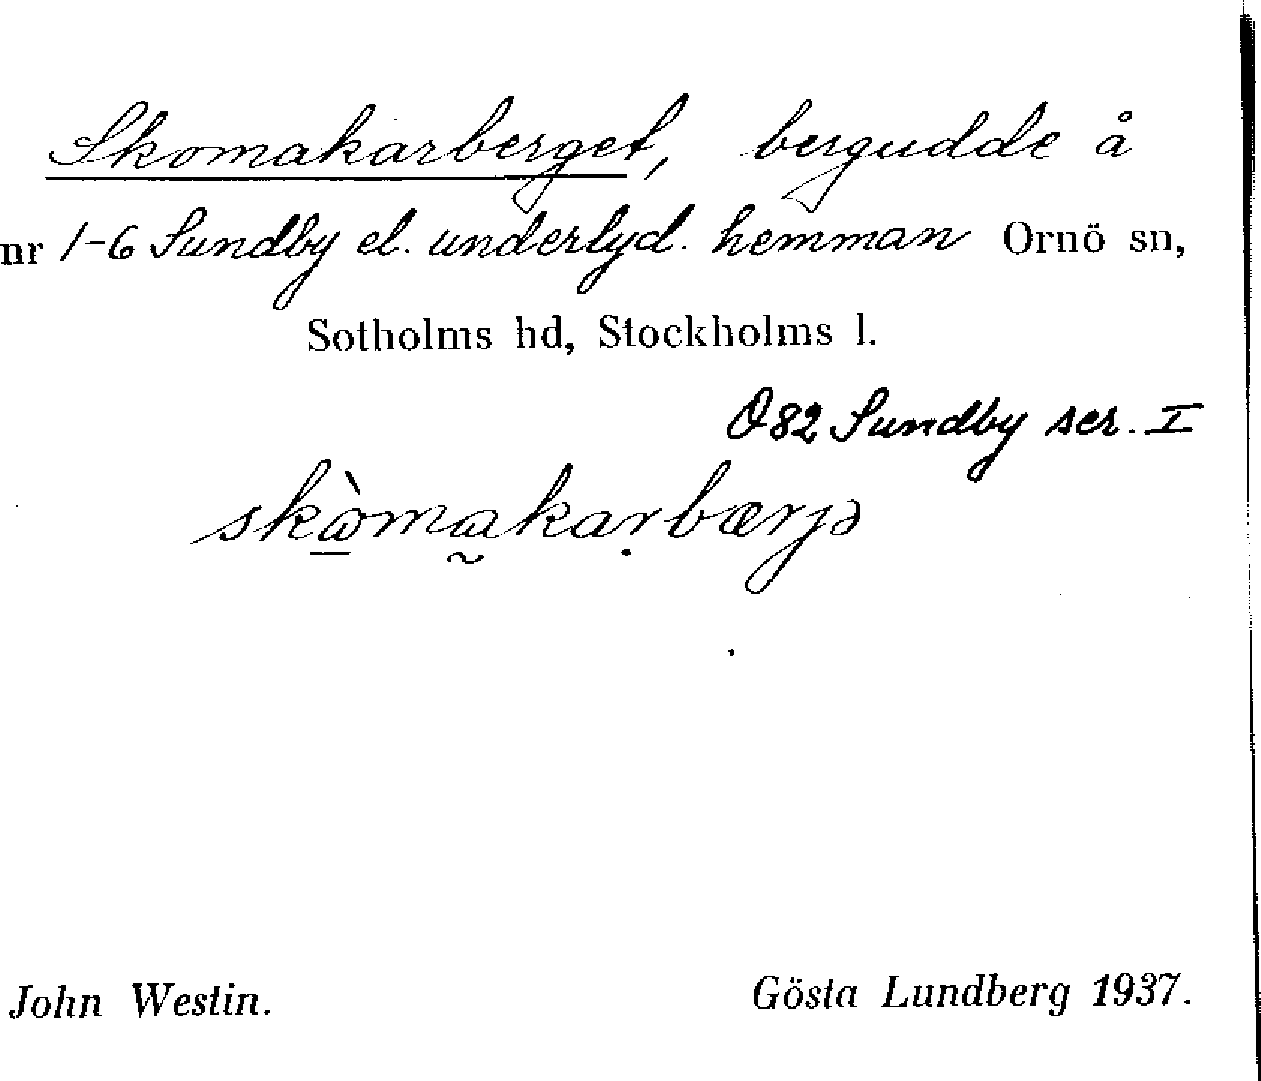 Skomakarberget, bergudde å
nr 1-6 Sundby el. underlyd. hemman Ornö sn,
Sotholms hd, Stockholms l.
Ö82 Sundby ser. I
skὼmakaṛbærjə
John Westin.
Gösta Lundberg 1937.